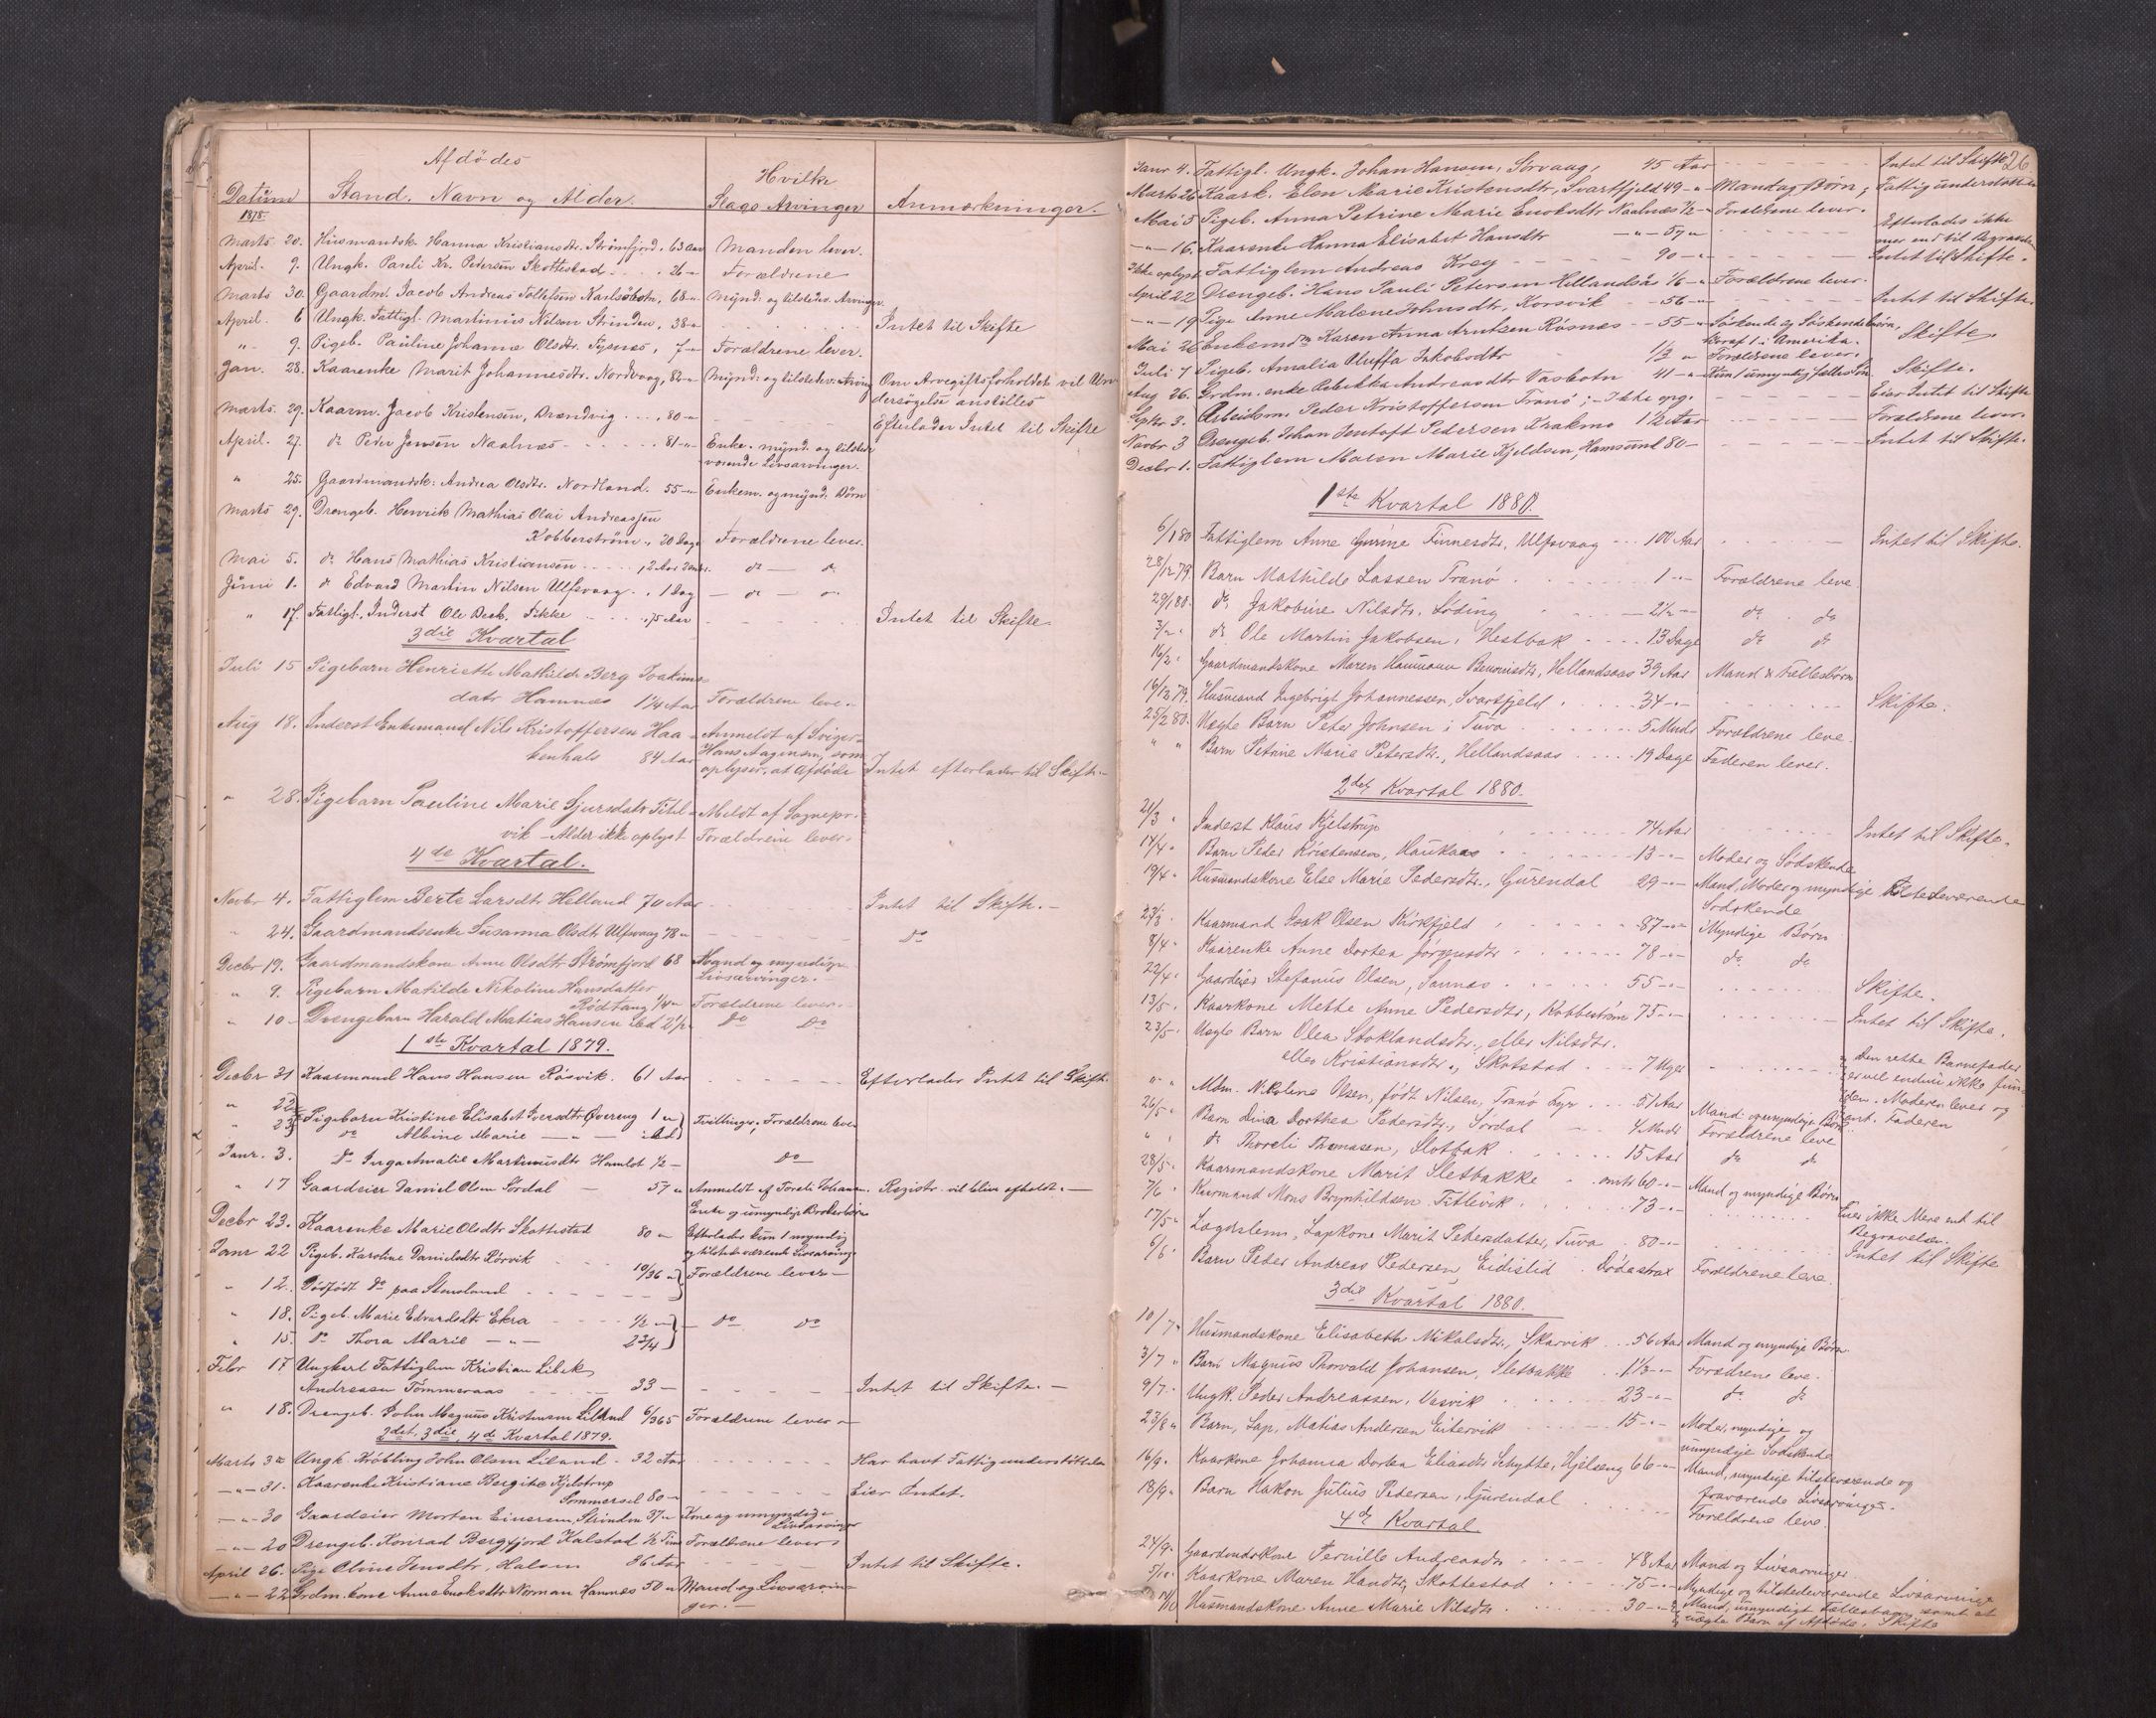 Afdödes
Hvilke
Datum Stand. Navn og Alder. Slags Arvinger Anmærkninger.
1878.
Marts 20. Husmandsk. Hanna Kristiansdtr. Strömfjord. 63 Aar Manden lever.
April. 9. Ungk. Pauli Kr. Pedersen Skottestad 26 -" Forældrene
Marts 30. Gaardm. Jacob Andreas Tollefsen Karlsöbotn, 68 -" Mynd: og tilstedev. Arvinger.
April. 6 Ungk. Fattigl. Martinus Nilsen Strinden, 38 -" Intet til Skifte
" 9. Pigeb. Pauline Johanna Olsdtr. 7 -" Forældrene lever.
Jan. 28. Kaarenke Marit Johannesdtr. Nordvaag, 82 -" Mynd: og tilstedev: Arving Om Arvegiftsforholdet vil Un-
dersögelse anstilles
Marts. 29. Kaarm. Jacob Kristensen, Brændvig 80 -" Efterlader Intet til Skifte
April. 27. do Peder Jensen Naalnæs 81 -" Enke. mynd. og tilstede
værende Livsarvinger.
" 25. Gaardmandsk: Andrea Olsdtr. Nordland. 55 -" Enkem. og mynd. Börn
Marts 29. Drengeb. Henrik Mathias Olai Andreassen
Kobberström., 20 Dage Forældrene lever.
Mai 5. do Hans Mathias Kristiansen 2 Aar do — do
Juni 1. do Edvard Martin Nilsen Ulfsvaag. 1 Dag — do — do
" 17. Fattigl. Inderst Ole Beck. 75 Aar Intet til Skifte.
3die Kvartal
Juli 15 Pigebarn Henriette Mathilde Berg Joakims-
datr Hamnes 1¼ Aar Forældrene leve.
Aug 18. Inderst Enkemand Nils Kristoffersen Haa- Anmeldt af Sviger-
kenhals 84 Aar Hans Aagesen, som
oplyser, at Afdöde Intet efterlader til Skifte.
" 28. Pigebarn Pauline Marie Sjursdatr Titel- Meldt af Sognepr.
vik - Alder ikke oplyst Forældrene lever.
4de Kvartal.
Novbr 4. Fattiglem Berte Larsdtr Helland 70 Aar Intet til Skifte.
" 24. Gaardmandsenke Susanna Olsdtr Ulfsvaag 78 " do
Decbr 19. Gaardmandskone Anne Olsdtr Strömfjord 68 Mand og myndige
Livsarvinger.
" 9. Pigebarn Matilde Nikoline Hansdatter
Rödtang ¼ " Forældrene lever.
" 10 - Drengebarn Harald Matias Hansen 2½ do do
1ste Kvartal 1879.
Decbr 21 Kaarmand Hans Hansen Rösvik. 61 Aar Efterlader Intet til Skifte.
" 22
" 23 Pigebarn Kristine Elisabet Övereng 1 " Tvillinger, Forældrene leve
do Albine Marie — " —
Janr. 3. do Inga Amalie Martinusdtr ½ — do
" 17 Gaardeier Daniel Olsen Sördal — 57 " Anmeldt af Toreli Johansen. Registr. vil blive afholdt. —
Enke og umyndige Broderbörn
Decbr 23. Kaarenke Marie Olsdtr Skottestad 80 " Efterlader kun 1 myndig
og tilstedeværende Livsarving
Janr 22 Pigeb. Karoline Danielsdtr Rörvik 10/36 " Forældrene lever —
" 12. Dödfödt do paa Stensland
" 18. Pigeb. Marie Edvardsdtr Ekra ½ " do do
" 15. do Thora Marie — " — 2¾
Febr 17 Ungkarl Fattiglem Kristian Libek
Andreasen Tömmeraas 33 — Intet til Skifte. —
" 18. Drengeb. John Magnus Kristensen Liland 6/365 Forældrene lever —
2det, 3die, 4de Kvartal 1879.
Marts 3 Ungk. Kröbling John Olsen Liland. 32 Aar Har havt Fattigunderstöttelse
— " — 31. Kaarenke Kristiane Bergite Kjelstrup
Sommersel 80 — Eier Intet.
— " 30 Gaardeier Morten Einersen, Strinden 37 " Kone og umyndige
Livsarvinger
— " 20 Drengeb. Konrad Bergfjord Kalstad ½ Time Forældrene lever
April 26. Pige Oline Jensdtr, 86 Aar Intet til Skifte.
— " — 22 Grdm. kone Anne Enoksdtr Norman Hamnes 50 " Mand og Livsarvin-
ger. —
26
Janr 4. Fattigl. Ungk. Johan Hansen, Sörvaag, 45 Aar Intet til Skifte
Marts 26 Kaark. Elen Marie Kristensdtr, Svartfjeld 49 - " Mand og Börn; Fattigunderstöttet
Mai 5 Pigeb. Anna Petrine Marie Enoksdtr Naalnæs ½ - Forældrene lever.
— " — 16. Kaarenke Hanna Elisabet Hansdtr — " — 59 " Efterlades ikke
mer end til Begravelsen
Ikke oplyst Fattiglem Andreas Krey 90 - " Intet til Skifte.
April 22 Drengeb. Hans Pauli Petersen Hellandsås 1/6 - " Forældrene lever.
— " — 19 Pige Anne Malene Johnsdtr, Korsvik 56 - " Intet til Skifte
Mai 26 Enkemd Karen Anna Arntsen Rösnes 55 - " Söskende og Söskendebörn, Skifte,
hvoraf 1 i Amerika.
Juli 7 Pigeb. Amalia Oluffa Jakobsdtr 1½ " Forældrene lever.
Aug 26. Grdm. enke Rebekka Andreasdtr Vasbotn 41 - " Kun 1 umyndig fælles Sön Skifte.
Septbr 3. Arbeidsm. Peder Kristoffersen Tranö; - Ikke opg. Eier Intet til Skifte
Novbr 3 Drengeb. Johan Jentoft Pedersen Krakmo 1½ Aar Forældrene lever.
Decbr 1. Fattiglem Maren Marie Kjeldsen, Hamsund 80 - Intet til Skifte.
1ste Kvartal 1880.
6/1 80 Fattiglem Anne Gurine Finnesdtr, Ulfsvaag 100 Aar Intet til Skifte.
28/12 79. Barn Mathilde Lassen Tranö 1 - " - Forældrene leve
29/1 80. do Jakobine Nilsdtr. Löding 2½ - do do
3/2 " do Ole Martin Jakobsen, Hestbak 13 Dage do do
16/2 " Gaardmandskone Maren Hansdtr, Hellandsaas 39 Aar Mand & Fællesbörn
16/12 79. Husmand Ingebrigt Johannessen, Svartfjeld 34 - " - Skifte.
25/2 80. Uægte Barn Peter Johnsen i Tuva 5 Mndr Forældrene leve.
" " Barn Petrine Marie Petersdtr., Hellandsaas 19 Dage Faderen lever.
2det Kvartal 1880.
21/3 " Inderst Klaus Kjelstrup 74 Aar Intet til Skifte.
14/4 " Barn Peder Kristensen, Haukaas 13 - " - Moder og Södskende
19/4 " Husmandskone Else Marie Pedersdtr., Gurendal 29 - " - Mand, Moder og myndige tilstedeværende
Södskende
27/3 " Kaarmand Isak Olsen Kirkfjeld 87 - " - Myndige Börn
8/4 " Kaarenke Anne Dortea Jörgensdtr 78 - " - do do
22/4 " Gaardeier Stefanus Olsen, Sannes 55 - " - Skifte.
13/5 " Kaarkone Mette Anne Pedersdtr, Kobberström 75 - " - Intet til Skifte.
23/5 " Uægte Barn Olea Stoklandsdtr., eller Nilsdtr.
eller Kristiansdtr., Skotstad 7 Uger Den rette Barnefader
" " Mdm. Nikoline Olsen, födt Nilsen, Tranö Fyr 51 Aar Mand og umyndige Börn er vel endnu ikke fun-
26/5 " Barn Dina Dorthea Pedersdtr., Sördal 4 Mndr Forældrene leve den. Moderen lever og
" " do Thoreli Thomasen, Slotbak 15 Aar do do Faderen
28/5 " Kaarmandskone Marit Sletbakke omtr 60 - " - Mand og myndige Börn
7/6 " Kaarmand Mons Brynhildsen Titelvik 73 - " - Eier ikke Mere end til
Begravelsen.
17/5 " Lægdslem, Lapkone Marit Pedersdatter, Tuva 80 - " - Intet til Skifte
6/6 " Barn Peder Andreas Pedersen, Eidistid. Döde strax Forældrene leve.
3die Kvartal 1880.
10/7 " Husmandskone Elisabeth Mikalsdtr., Skarvik 56 Aar Mand og myndige Börn.
3/7 " Barn Magnus Thorvald Johansen, Sletbakke 1⅓ - " - Forældrene leve.
9/7. " Ungk. Peder Andreassen, Vasvik 23 - " - do do
23/8 " Barn, Lap, Matias Andersen Eitervik 15 - " - Moder, myndige og
umyndige Södskende
16/9. " Kaarkone Johanna Dortea Eliasdtr Schytte, Hjelseng 66 - " - Mand, myndige tilstedeværende og
fraværende Livsarvinger.
18/9 " Barn Hakon Julius Pedersen, Gjurendal Forældrene leve.
4de Kvartal
24/9 " Gaardmdskone Pernille Andreasdtr 48 Aar Mand og Livsarvinger
Kaarkone Maren Hansdtr, Skottestad 75 - " - Myndige og tilstedeværende Livsarvinger
Husmandskone Anne Marie Nilsdtr. 30 - " - Mand, umyndigt Fællesbarn samt et
uægte Barn af Afdöde. Skifte